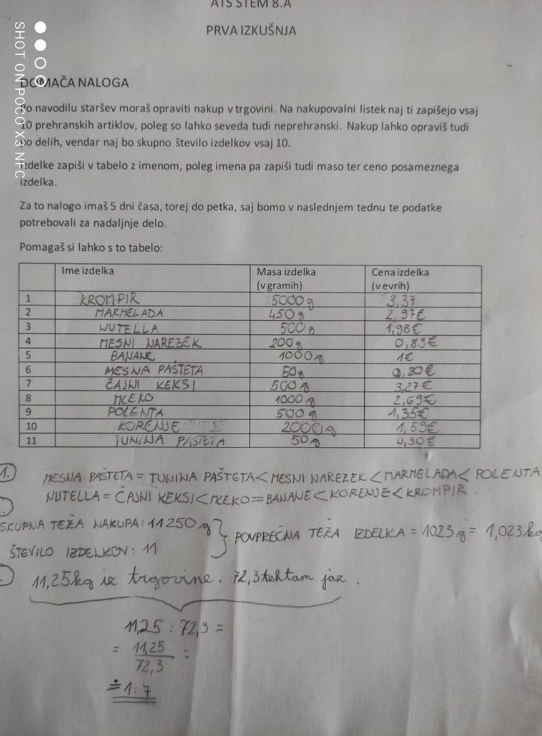 ATS STEM 8.A
PRVA IZKUŠNJA
SHOT ON POCO X3 NFC
DOMAČA NALOGA
Po navodilu staršev moraš opraviti nakup v trgovini. Na nakupovalni listek naj ti zapišejo vsaj
10 prehranskih artiklov, poleg so lahko seveda tudi neprehranski. Nakup lahko opraviš tudi
po delih, vendar naj bo skupno število izdelkov vsaj 10.
Izdelke zapiši v tabelo z imenom, poleg imena pa zapiši tudi maso ter ceno posameznega
izdelka.
Za to nalogo imaš 5 dni časa, torej do petka, saj bomo v naslednjem tednu te podatke
potrebovali za nadaljnje delo.
Pomagaš si lahko s to tabelo:
Ime izdelka Masa izdelka (v gramih) Cena izdelka (v evrih)
1 KROMPIR 5000g 3,37
2 MARMELADA 450g 2,97€
3 NUTELLA 500g 1,98€
4 MESNI NAREZEK 200g 0,89€
5 BANANE 1000g 1€
6 MESNA PAŠTETA 50g 0,20€
7 ČAJNI KEKSI 500g 3,27€
8 MLEKO 1000g 2,69€
9 POLENTA 500g 1,35€
10 KORENJE 2000g 1,59€
11 TUNINA PAŠTETA 50g 0,50€
1. MESNA PAŠTETA = TUNINA PAŠTETA < MESNI NAREZEK < MARMELADA < POLENTA
NUTELLA = ČAJNI KEKSI < MLEKO = BANANE < KORENJE < KROMPIR.
SKUPNA TEŽA NAKUPA: 11250g
ŠTEVILO IZDELKOV: 11
} POVPREČNA TEŽA IZDELKA = 1023g = 1,023kg
11,25kg iz trgovine. 72,3 tehtam jaz.
11,25 : 72,3 =
= 11,25 / 72,3 =
≐ 1:7